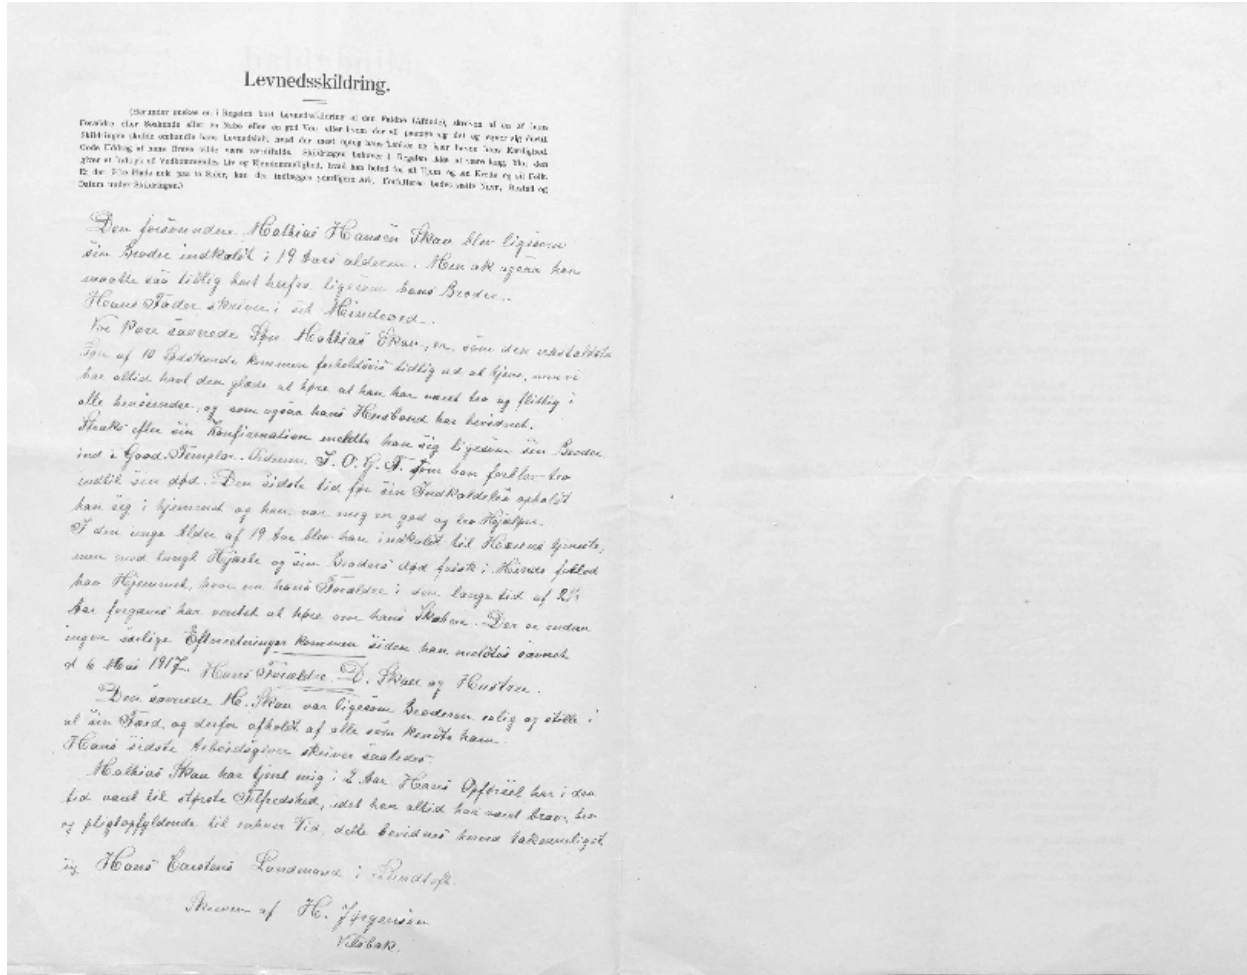 Levnedsskildring.
(Herunder ønskes en i Regelen kort Levnedsskildring af den Faldne (Afdøde), skreven af en af hans
Forældre eller Søskende eller en Nabo eller en god Ven eller hvem der vil paatage sig det og egner sig dertil.
Skildringen skulde omhandle hans Levnedsløb, hvad der mest optog hans Tanker og især havde hans Kærlighed.
Gode Uddrag af hans Breve vilde være værdifulde. Skildringen behøver i Regelen ikke at være lang, blot den
giver et Indtryk af Vedkommendes Liv og Ejendommelighed, hvad han betød for sit Hjem og sin Kreds og sit Folk.
Er der ikke Plads nok paa to Sider, kan der indlægges yderligere Ark. Forfatteren bedes sætte Navn, Bosted og
Datum under Skildringen.)
Den forsvundne Mathias Hansen Skau blev ligesom
sin Broder indkaldt i 19 Aars alderen. Men ak ogsaa han
maatte saa tidlig bort herfra ligesom hans Broder.
Hans Fader skriver i sit Mindeord.
Vor kære savnede Søn Mathias Skau, er, som den næstældste
Søn af 10 Sødskende kommen forholdsvis tidlig ud at tjene, men vi
har altid havt den glæde at høre at han har været tro og flittig i
alle henseender, og som ogsaa hans Husbond har bevidnet.
Straks efter sin Konfirmation meldte han sig ligesom sin Broder
ind i Good-Templar-Ordenen I. O. G. T. som han forblev tro
indtil sin død. Den sidste tid før sin Indkaldelse opholdt
han sig i hjemmet og han var mig en god og tro Hjælper.
I den unge Alder af 19 Aar blev han indkaldt til Hærens tjeneste,
men med tungt Hjærte og sin Broders død frisk i Minde forlod
han Hjemmet, hvor nu hans Forældre i den lange tid af 2½
Aar forgæves har ventet at høre om hans Skæbne. Der er endnu
ingen særlige Efterretninger kommen siden han meldtes savnet
d 6 Mai 1917. Hans Forældre. D. Skau og Hustru.
Den savnede M. Skau var ligesom Broderen rolig og stille i
al sin Færd, og derfor afholdt af alle som kendte ham.
Hans sidste Arbeidsgiver skriver saaledes.
Mathias Skau har tjent mig i 2 Aar. Hans Opførsel har i den
tid været til største Tilfredshed, idet han altid har været brav, tro
og pligtopfyldende til enhver Tid, dette bevidnes herved taknemligst
Hans Carstens Landmand i Lundtoft.
Skreven af H. Jørgensen
Vilsbæk.